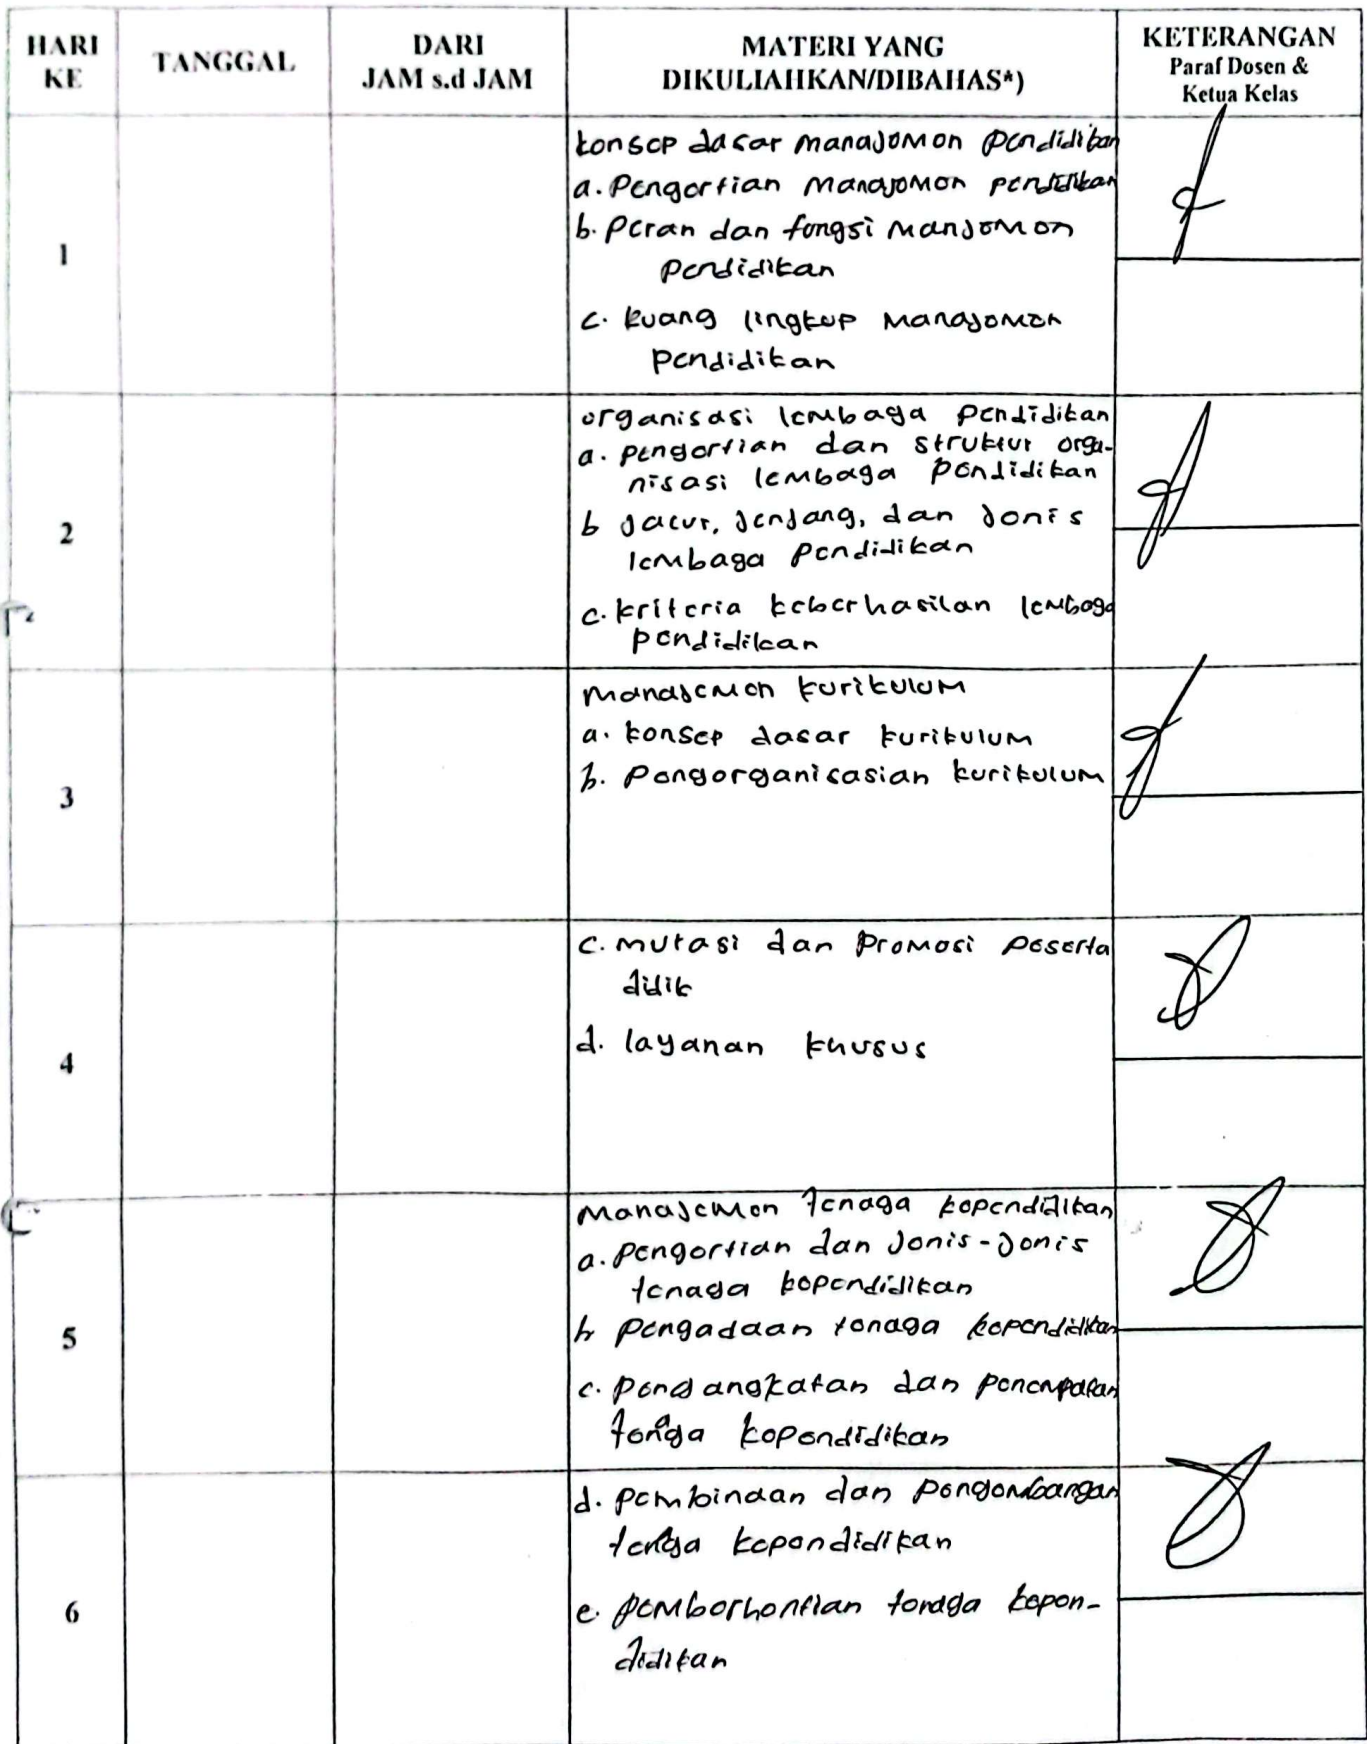 HARI KE
TANGGAL
DARI
JAM s.d JAM
MATERI YANG
DIKULIAHKAN/DIBAHAS*)
KETERANGAN
Paraf Dosen &
Ketua Kelas
1
konsep dasar manajemen pendidikan
a. Pengertian manajemen pendidikan
b. Peran dan fungsi manjemen
pendidikan
c. Ruang lingkup manajemen
pendidikan
2
organisasi lembaga pendidikan
a. pengertian dan struktur orga-
nisasi lembaga pendidikan
b jalur, jenjang, dan jenis
lembaga pendidikan
c. kriteria keberhasilan lembaga
pendidikan
3
manajemen kurikulum
a. konsep dasar kurikulum
b. Pengorganisasian kurikulum
4
c. mutasi dan promosi peserta
didik
d. layanan khusus
5
manajemen tenaga kependidikan
a. pengertian dan jenis-jenis
tenaga kependidikan
b pengadaan tenaga kependidikan
c. pengangkatan dan penempatan
tenaga kependidikan
6
d. pembinaan dan pengembangan
tenaga kependidikan
e. pemberhentian tenaga kepen-
didikan